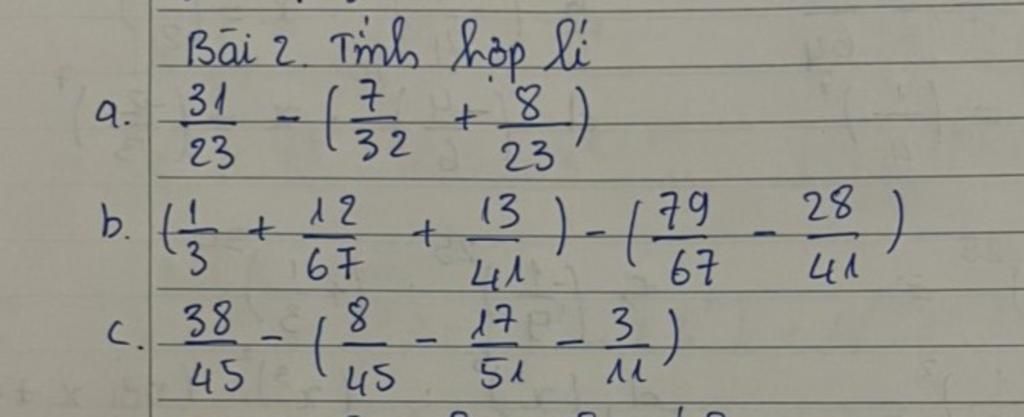 Bài 2. Tính hợp lí
a. 31/23 - (7/32 + 8/23)
b. (1/3 + 12/67 + 13/41) - (79/67 - 28/41)
c. 38/45 - (8/45 - 17/51 - 3/11)